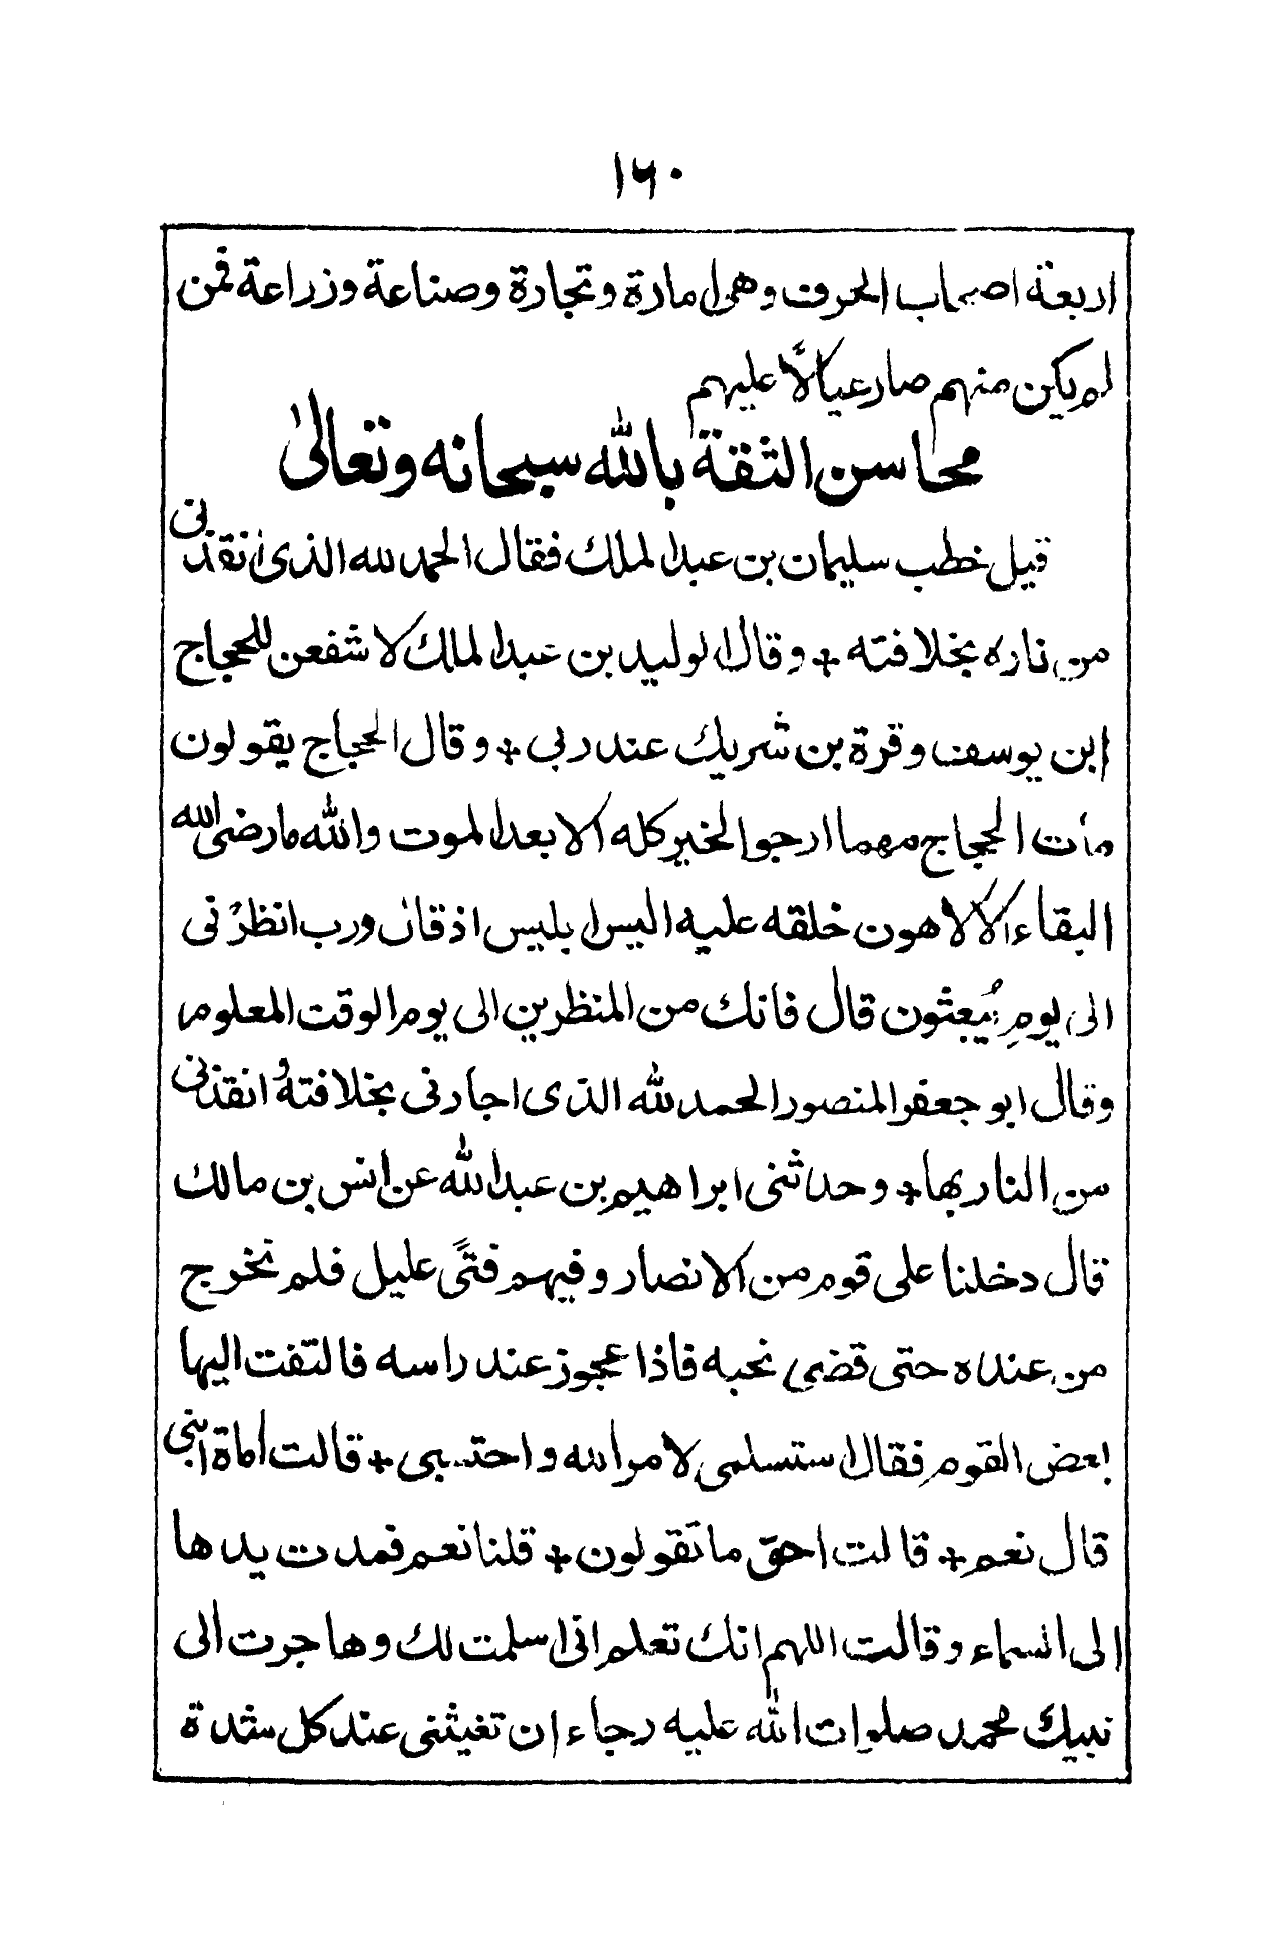 ١٦٠
اربعة اصحاب الحرف وهى امارة وتجارة وصناعة وزراعة فمن
لم يكن منهم صار عيالًا عليهم
محاسن الثقة بالله سبحانه وتعالىٰ
قيل خطب سليمان بن عبد الملك فقال الحمد لله الذى انقذنى
من ناره بخلافته + وقال الوليد بن عبد الملك لاشفعن للحجاج
ابن يوسف وقرة بن شريك عند ربى + وقال الحجاج يقولون
مات الحجاج مهما ارجو الخير كله الا بعد الموت والله ما رضى الله
البقاء الا لاهون خلقه عليه اليس ابليس اذ قال رب انظرنى
الى يوم يُبعثون قال فانك من المنظرين الى يوم الوقت المعلوم
وقال ابو جعفر المنصور الحمد لله الذى اجارنى بخلافته وانقذنى
من النار بها + وحدثنى ابراهيم بن عبد الله عن انس بن مالك
قال دخلنا على قوم من الانصار وفيهم فتًى عليل فلم نخرج
من عنده حتى قضى نحبه فاذا عجوز عند راسه فالتفت اليها
بعض القوم فقال استسلمى لامر الله واحتسبى + قالت امات ابنى
قال نعم + قالت احق ما تقولون + قلنا نعم فمدت يدها
الى السماء وقالت اللهم انك تعلم انى اسلمت لك وهاجرت الى
نبيك محمد صلوات الله عليه رجاء ان تغيثنى عند كل شدة